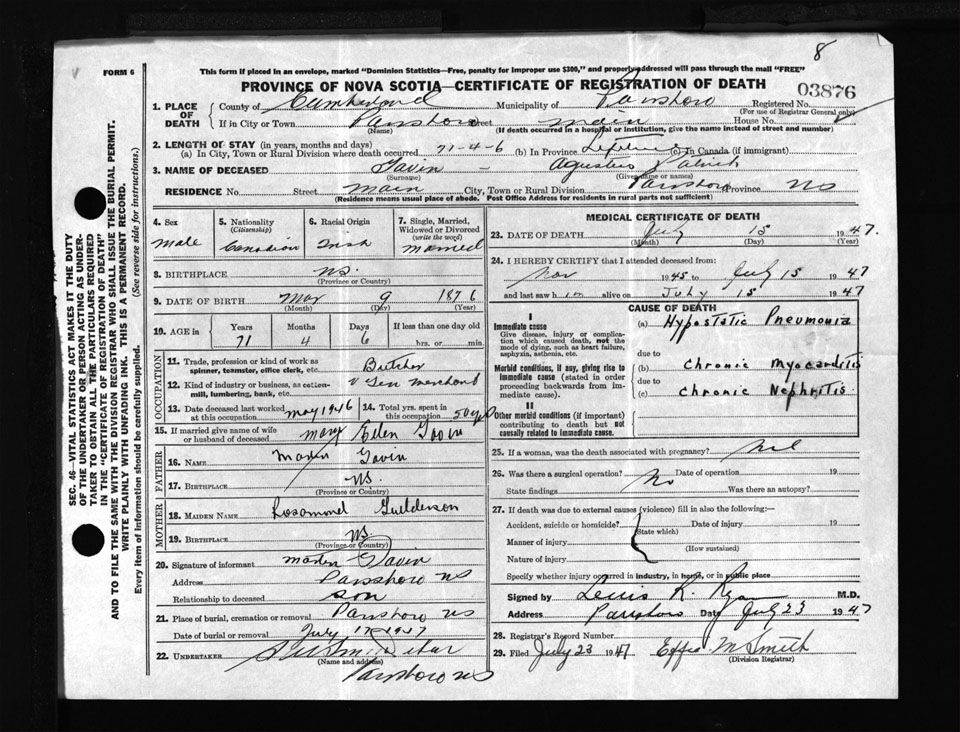 8
FORM 6
This form if placed in an envelope, marked "Dominion Statistics—Free, penalty for improper use $300," and properly addressed will pass through the mail "FREE"
PROVINCE OF NOVA SCOTIA—CERTIFICATE OF REGISTRATION OF DEATH
03876
1. PLACE OF DEATH
County of Cumberland Municipality of Parrsboro Registered No.
(For use of Registrar General only)
If in City or Town Parrsboro Street Main House No.
(Name) (If death occurred in a hospital or institution, give the name instead of street and number)
2. LENGTH OF STAY (in years, months and days)
(a) In City, Town or Rural Division where death occurred 71-4-6 (b) In Province Lifetime (c) In Canada (if immigrant)
3. NAME OF DECEASED Gavin - Agustus Patrick
(Surname) (Given name or names)
RESIDENCE No. Street Main City, Town or Rural Division Parrsboro Province NS
(Residence means usual place of abode. Post Office Address for residents in rural parts not sufficient)
4. Sex
Male
5. Nationality
(Citizenship)
Canadian
6. Racial Origin
Irish
7. Single, Married, Widowed or Divorced
(write the word)
Married
8. BIRTHPLACE NS.
(Province or Country)
9. DATE OF BIRTH Mar 9 1876
(Month) (Day) (Year)
10. AGE in
Years Months Days If less than one day old
71 4 6 hrs. or min.
OCCUPATION
11. Trade, profession or kind of work as spinner, teamster, office clerk, etc. Butcher
12. Kind of industry or business, as cotton-mill, lumbering, bank, etc. Gen Merchant
13. Date deceased last worked at this occupation May 1946
14. Total yrs. spent in this occupation 50
15. If married give name of wife or husband of deceased Mary Ellen Gavin
FATHER
16. NAME Martin Gavin
17. BIRTHPLACE NS.
(Province or Country)
MOTHER
18. MAIDEN NAME Rosamond
19. BIRTHPLACE NS.
(Province or Country)
20. Signature of informant Martin Gavin
Address Parrsboro NS
Relationship to deceased son
21. Place of burial, cremation or removal Parrsboro NS
Date of burial or removal July 17 1947
22. UNDERTAKER
(Name and address)
Parrsboro NS
MEDICAL CERTIFICATE OF DEATH
23. DATE OF DEATH July 15 1947.
(Month) (Day) (Year)
24. I HEREBY CERTIFY that I attended deceased from:
Nov 1945 to July 15 1947
and last saw him alive on July 15 1947
CAUSE OF DEATH
I
Immediate cause
Give disease, injury or complication which caused death, not the mode of dying, such as heart failure, asphyxia, asthenia, etc.
(a) Hypostatic Pneumonia
due to
Morbid conditions, if any, giving rise to immediate cause (stated in order proceeding backwards from immediate cause).
(b) Chronic Myocarditis
due to
(c) Chronic Nephritis
II
Other morbid conditions (if important) contributing to death but not causally related to immediate cause.
25. If a woman, was the death associated with pregnancy? Nil
26. Was there a surgical operation? No Date of operation 19
State findings Was there an autopsy?
27. If death was due to external causes (violence) fill in also the following:—
Accident, suicide or homicide? Date of injury 19
(State which)
Manner of injury
(How sustained)
Nature of injury
Specify whether injury occurred in industry, in home, or in public place
Signed by Lewis R. Ryan M.D.
Address Parrsboro Date July 23 1947
28. Registrar's Record Number
29. Filed July 23 1947 Effie M Smith
(Division Registrar)
SEC. 46—VITAL STATISTICS ACT MAKES IT THE DUTY
OF THE UNDERTAKER OR PERSON ACTING AS UNDER-
TAKER TO OBTAIN ALL THE PARTICULARS REQUIRED
IN THE "CERTIFICATE OF REGISTRATION OF DEATH"
AND TO FILE THE SAME WITH THE DIVISION REGISTRAR WHO SHALL ISSUE THE BURIAL PERMIT.
WRITE PLAINLY WITH UNFADING INK. THIS IS A PERMANENT RECORD.
Every item of information should be carefully supplied. (See reverse side for instructions.)